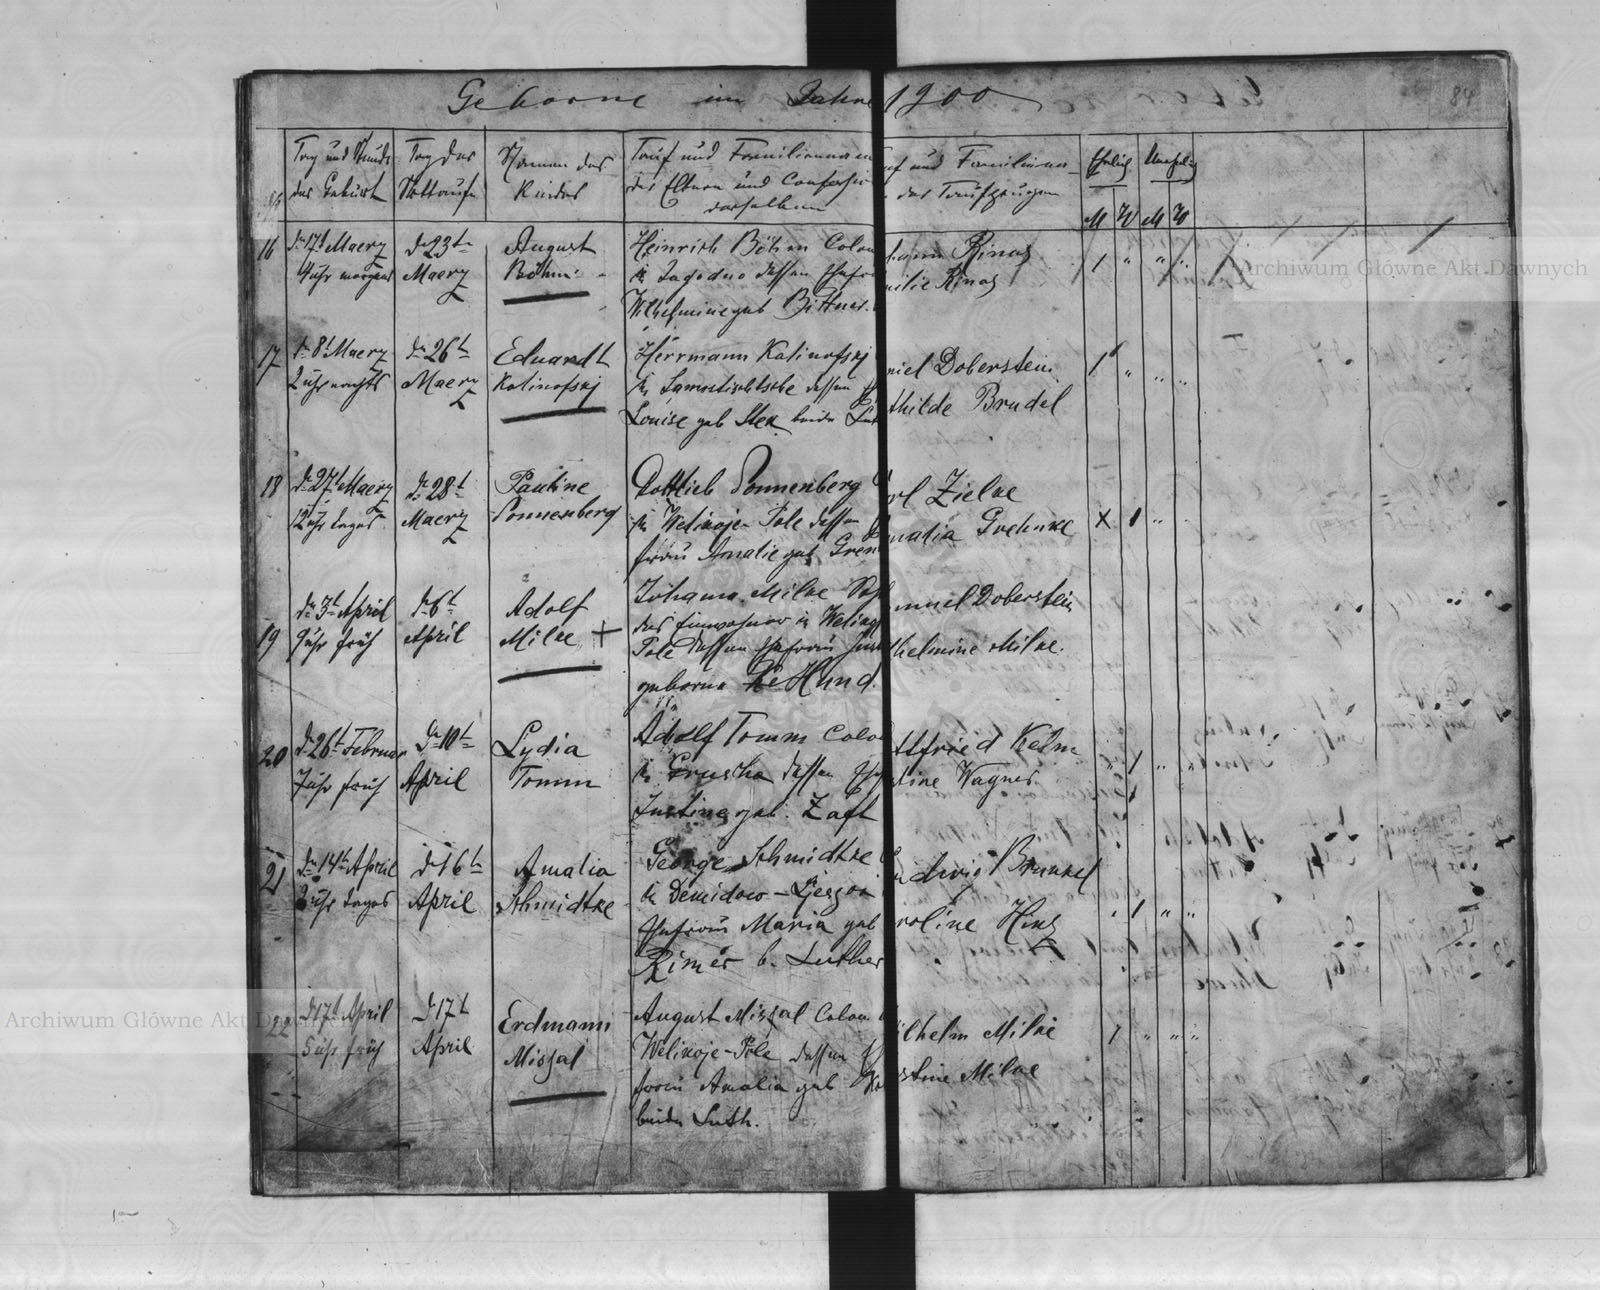 Geborne im Jahre 1900
84
Tag und Stunde der Geburt
Tag der Nottaufe
Namen des Kindes
Tauf und Familienname der Eltern und Confession derselben
und Familien der Taufzeugen
Ehelig
Unehelig
M W M W
16
d. 17t Maerz
4 uhr morgens
d 23t
Maerz
August
Böhm
Heinrich Böhm Colon
in Jagodno dessen Ehefr
Wilhelmine geb Bittner.
Rinas
Rinas
1 " " "
17
8t Maerz
2 uhr nachts
d. 26t
Maerz
Eduardt
Kalinofskj
Herrmann Kalinofskj
in dessen
Louise geb Stek beide Lut
niel Doberstein
thilde Brudel
1 " " "
18
d. 27t Maerz
12 uhr tages
d. 28t
Maerz
Pauline
Sonnenberg
Gottlieb Sonnenberg
in Welikoje-Pole dessen
frau Amalie geb. Gren
rl Zielke
malia Grehnke
X 1 "
19
d. 3t April
9 uhr früh
d. 6t
April
Adolf
Milke +
Johann Milke
des Einwohner in
Pole dessen Ehefrau
geborne Hund.
muel Doberstein
helmine Milke.
20
d. 26t Februar
7 uhr früh
d. 10t
April
Lydia
Tomm
Adolf Tomm Colo
in Gruscha dessen Ehe
Justine geb. Zaft
ttfried Kelm
stine Wagner
" 1 "
21
d. 14t April
2 uhr tages
d. 16t
April
Amalia
Schmidtke
George Schmidtke
in Demidow-
Ehefrau Maria geb
Rimer b. Luther
udwig Brunkel
roline Hinz
" 1 " "
22
d 17t April
5 uhr früh
d. 17t
April
Erdmann
Missal
August Missal Colon
Welikoje-Pole dessen
frau Amalia geb
beide Luth.
ilhelm Milke
stine Milke
1 " " "
Archiwum Główne Akt Dawnych
Archiwum Główne Akt Dawnych